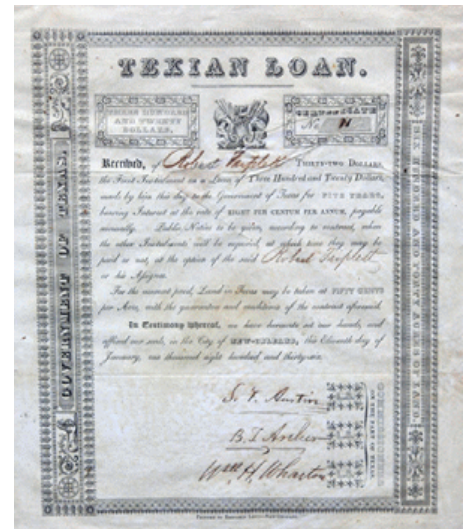 TEXIAN LOAN.
THREE HUNDRED
AND TWENTY
DOLLARS.
CERTIFICATE
No
Received, of Robert Triplett THIRTY-TWO DOLLARS,
the First Instalment on a Loan of Three Hundred and Twenty Dollars,
made by him this day to the Government of Texas for FIVE YEARS,
bearing Interest at the rate of EIGHT PER CENTUM PER ANNUM, payable
annually. Public Notice to be given, according to contract, when
the other Instalments will be required, at which time they may be
paid or not, at the option of the said Robert Triplett
or his Assigns.
For the amount paid, Land in Texas may be taken at FIFTY CENTS
per Acre, with the guarantee and conditions of the contract aforesaid.
In Testimony whereof, we have hereunto set our hands, and
affixed our seals, in the City of NEW-ORLEANS, this Eleventh day of
January, one thousand eight hundred and thirty-six.
S. F. Austin
B. T. Archer
Wm. H. Wharton
COMMISSIONERS
ON THE PART OF TEXAS.
GOVERNMENT OF TEXAS.
SIX HUNDRED AND FORTY ACRES OF LAND.